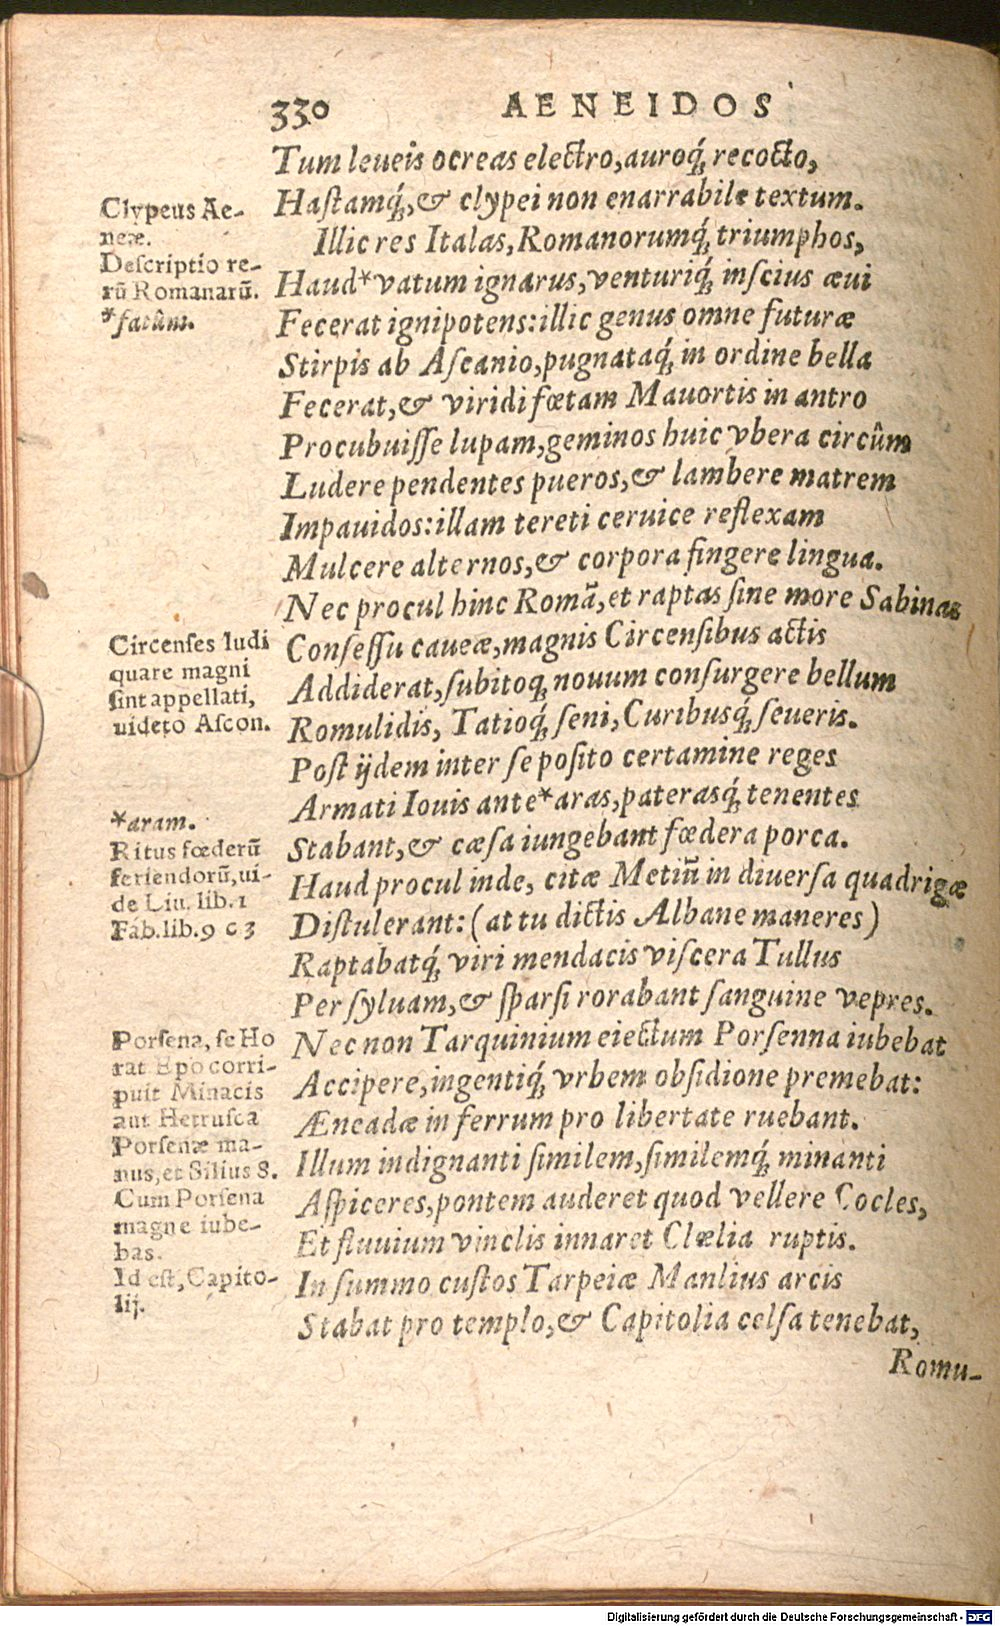 330 AENEIDOS
Tum leueis ocreas electro, auroq́; recocto,
Hastamq́;, & clypei non enarrabile textum.
Illic res Italas, Romanorumq́; triumphos,
Haud *vatum ignarus, venturiq́; inscius æui
Fecerat ignipotens: illic genus omne futuræ
Stirpis ab Ascanio, pugnataq́; in ordine bella
Fecerat, & viridi fœtam Mauortis in antro
Procubuisse lupam, geminos huic vbera circûm
Ludere pendentes pueros, & lambere matrem
Impauidos: illam tereti ceruice reflexam
Mulcere alternos, & corpora fingere lingua.
Nec procul hinc Romã, et raptas sine more Sabinas
Consessu caueæ, magnis Circensibus actis
Addiderat, subitoq; nouum consurgere bellum
Romulidis, Tatioq́; seni, Curibusq́; seueris.
Post ijdem inter se posito certamine reges
Armati Iouis ante *aras, paterasq́; tenentes
Stabant, & cæsa iungebant fœdera porca.
Haud procul inde, citæ Metiũ in diuersa quadrigæ
Distulerant: (at tu dictis Albane maneres)
Raptabatq́; viri mendacis viscera Tullus
Per syluam, & sparsi rorabant sanguine vepres.
Nec non Tarquinium eiectum Porsenna iubebat
Accipere, ingentiq́; vrbem obsidione premebat:
Æneadæ in ferrum pro libertate ruebant.
Illum indignanti similem, similemq́; minanti
Aspiceres, pontem auderet quod vellere Cocles,
Et fluuium vinclis innaret Clœlia ruptis.
In summo custos Tarpeiæ Manlius arcis
Stabat pro templo, & Capitolia celsa tenebat,
Romu-
Clypeus Ae-
neæ.
Descriptio re-
rũ Romanarũ.
*fatûm.
Circenses ludi
quare magni
sint appellati,
uideto Ascon.
*aram.
Ritus fœderũ
feriendorũ, ui-
de Liu. lib. 1
Fab. lib. 9 c 3
Porsena, se Ho
rat Epo corri-
puit Minacis
aut Hetrusca
Porsenæ ma-
nus, et Silius 8.
Cum Porsena
magne iube-
bas.
Id est, Capito-
lij.
Digitalisierung gefördert durch die Deutsche Forschungsgemeinschaft - DFG